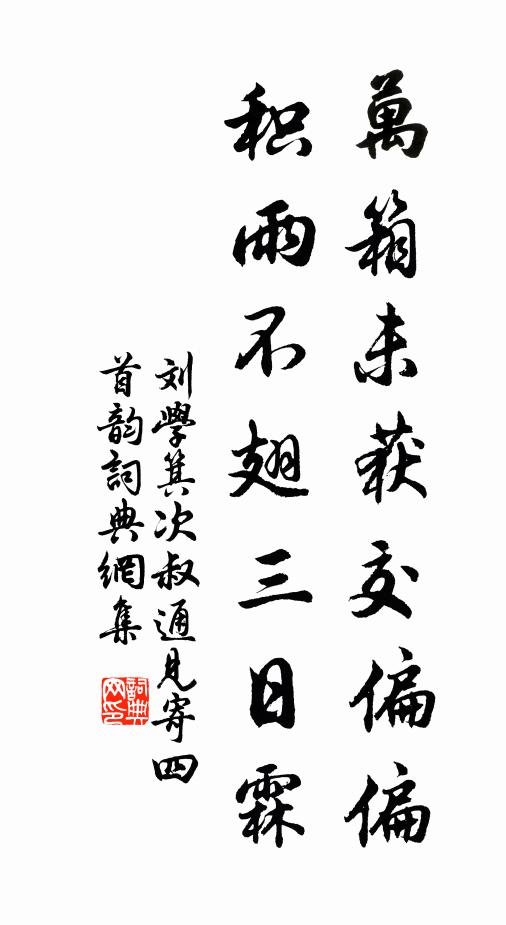 萬箱未获交偏偏
积雨不翅三日霖
刘學箕次叔通見寄四
首韵詞典網集
詞典网印